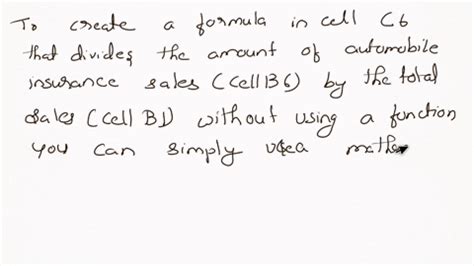 To create a formula in cell C6
that divides the amount of automobile
insurance sales (cell B6) by the total
sales (cell B1) without using a function
you can simply